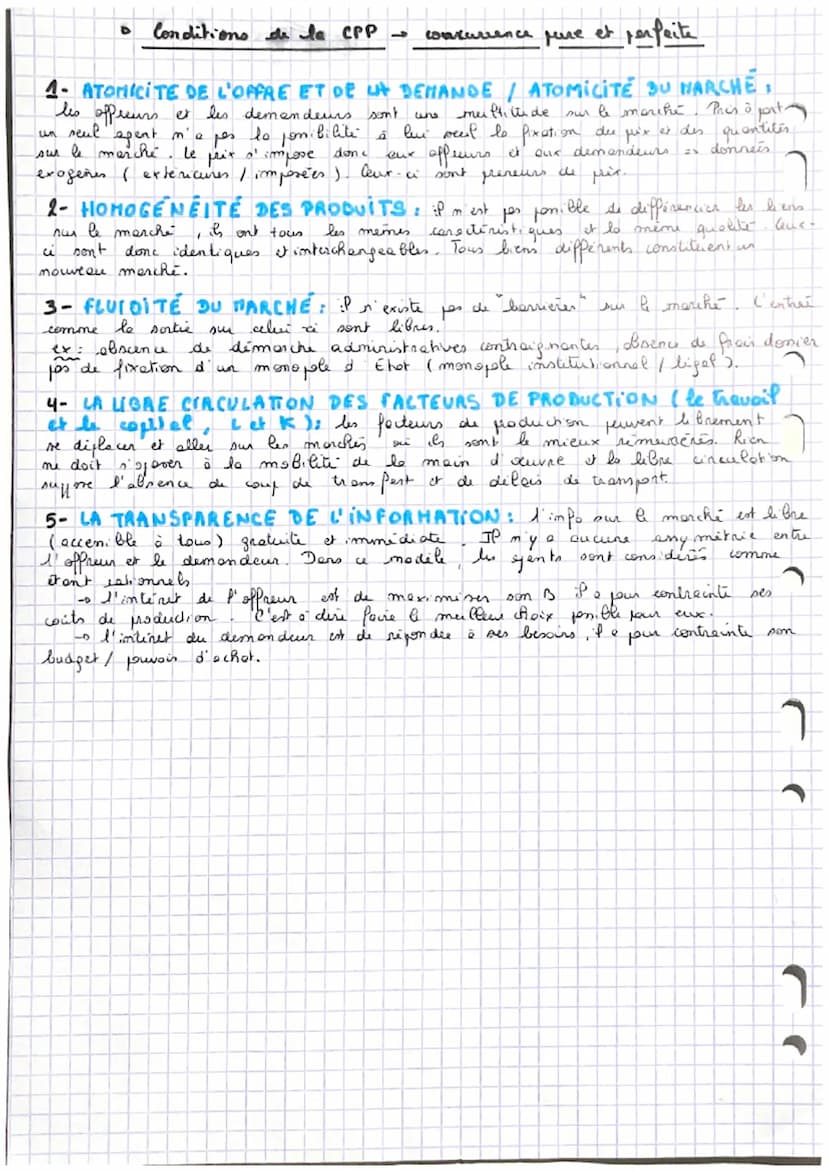 Conditions de la CPP → concurrence pure et parfaite
1- ATOMICITÉ DE L'OFFRE ET DE LA DEMANDE / ATOMICITÉ DU MARCHÉ :
les offreurs et les demandeurs sont une multitude sur le marché. Pris à part
un seul agent n'a pas la possibilité à lui seul la fixation des prix et des quantités
sur le marché. Le prix s'impose donc aux offreurs et aux demandeurs => données
exogènes (extérieures / imposées). Ceux-ci sont preneurs de prix.
2- HOMOGÉNÉITÉ DES PRODUITS : il n'est pas possible de différencier les biens
sur le marché, ils ont tous les mêmes caractéristiques et la même qualité. Ceux-
ci sont donc identiques et interchangeables. Tous biens différents constituent un
nouveau marché.
3- FLUIDITÉ DU MARCHÉ : il n'existe pas de "barrières" sur le marché. L'entrée
comme la sortie sur celui ci sont libres.
ex : abscence de démarche administratives contraignantes, absence de frais dossier
pas de fixation d'un monopole d'État (monopole institutionnel / légal).
4- LA LIBRE CIRCULATION DES FACTEURS DE PRODUCTION (le travail
et le capital, L et K) : les facteurs de production peuvent librement
se déplacer et aller sur les marchés où ils sont le mieux rémunérés. Rien
ne doit s'opposer à la mobilité de la main d'œuvre et la libre circulation
suppose l'absence de coup de transfert et de délais de transport.
5- LA TRANSPARENCE DE L'INFORMATION : l'info sur le marché est libre
(accessible à tous) gratuite et immédiate. Il n'y a aucune asymétrie entre
l'offreur et le demandeur. Dans ce modèle, les agents sont considérés comme
étant rationnels
→ l'intéret de l'offreur est de maximiser son B il a pour contrainte ses
coûts de production. C'est à dire faire le meilleur choix possible pour eux.
→ l'intéret du demandeur est de répondre à ses besoins, il a pour contrainte son
budget / pouvoir d'achat.